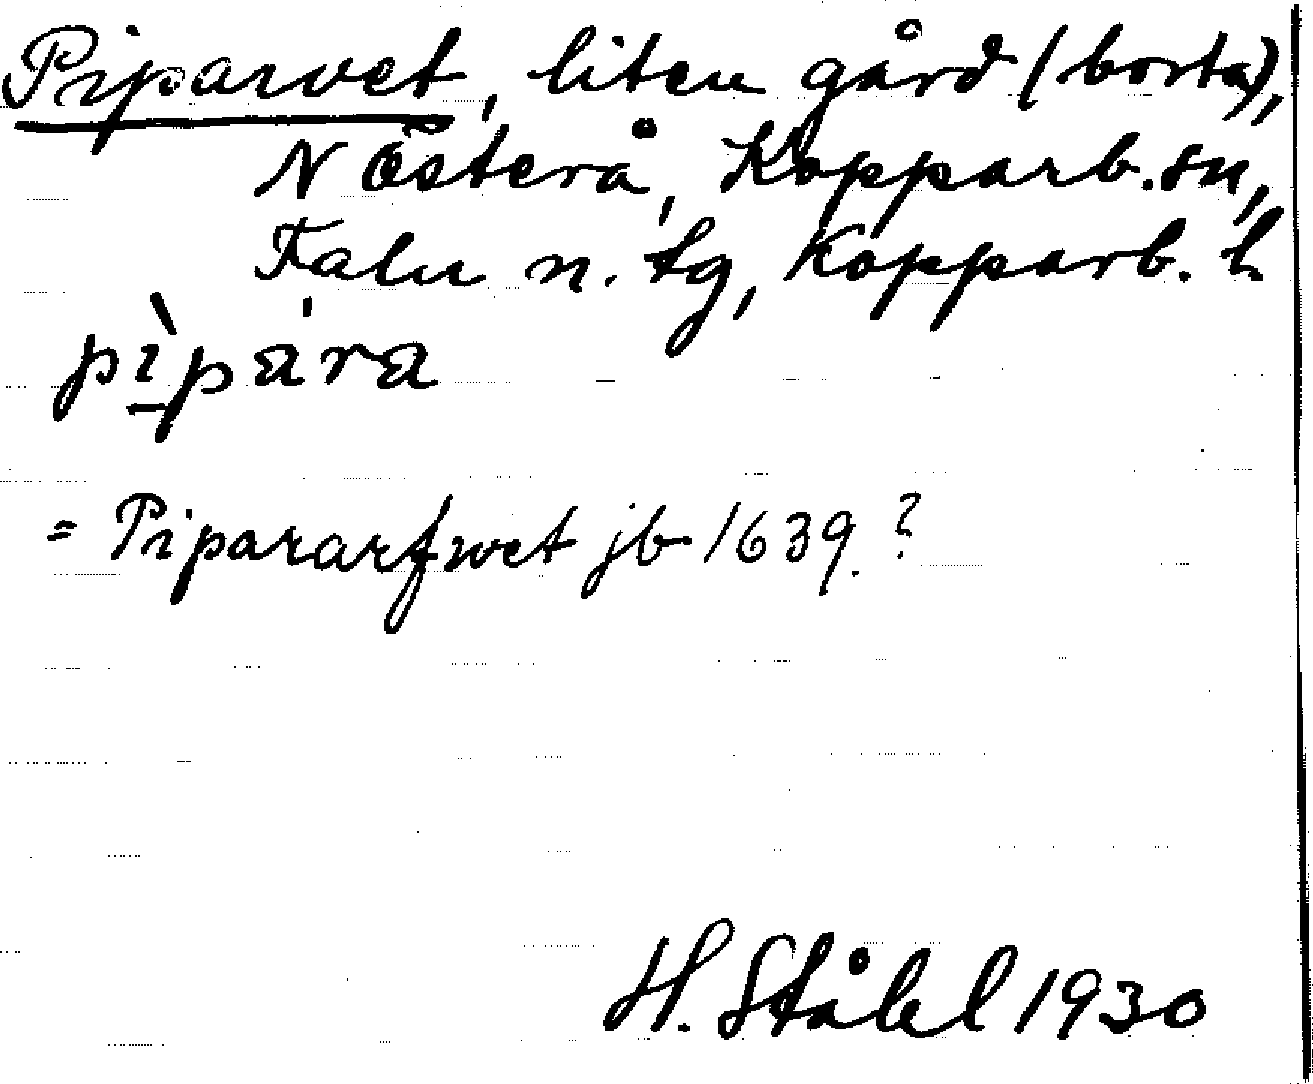 Piparvet, liten gård (borta),
N Österå, Kopparb. sn,
Falu n. tg, Kopparb. l.
pì̠pára
= Pipararfwet jb 1639. ?
H. Ståhl 1930